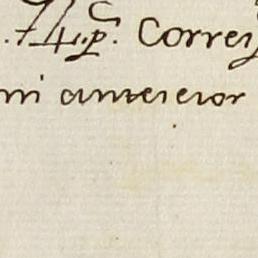 .74.p. Correi
mi anteieior